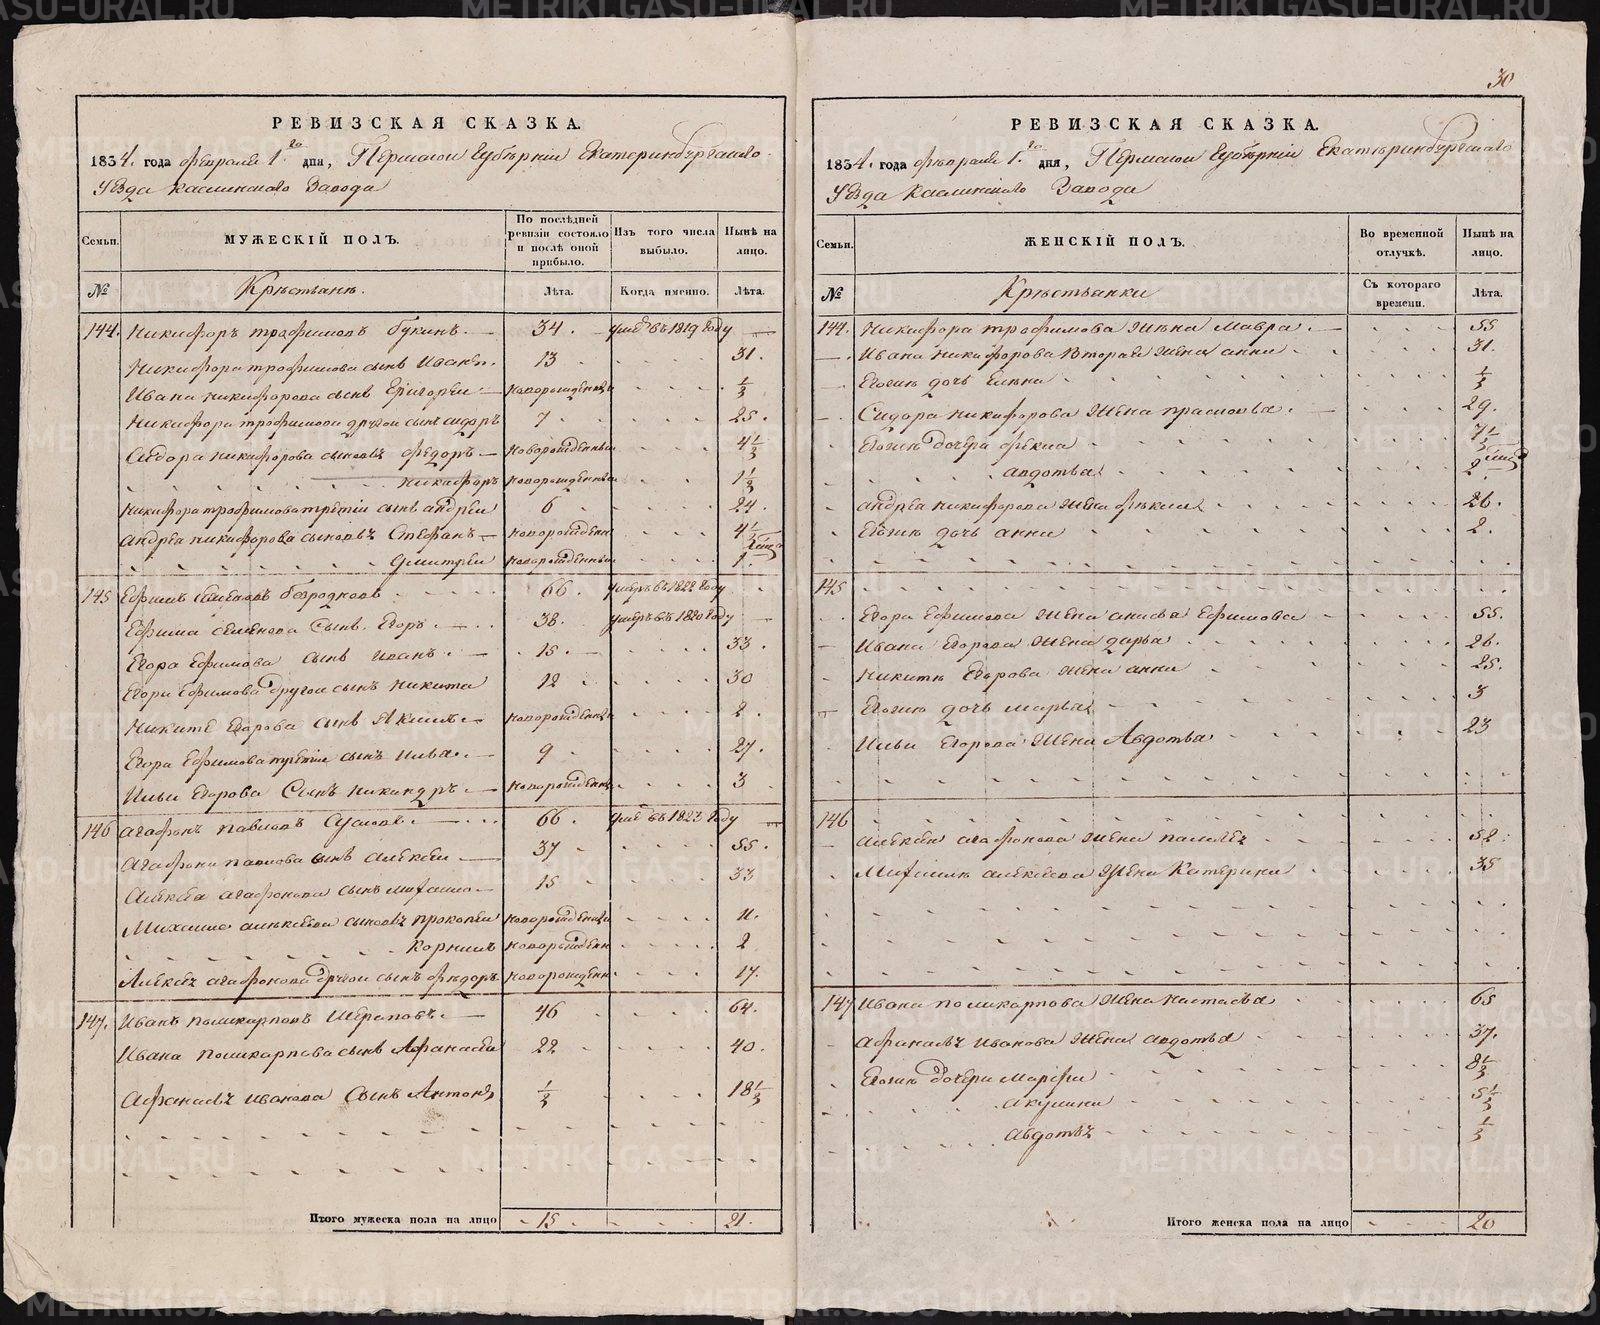 30
РЕВИЗСКАЯ СКАЗКА.
1834. года февраля 1.го дня, Пермской Губерніи Екатеринбургскаго
Уѣзда Каслинскаго Завода
Семьи.
МУЖЕСКІЙ ПОЛЪ.
По послѣдней ревизіи состояло и послѣ оной прибыло.
Изъ того числа выбыло.
Нынѣ на лицо.
№
Крестьянѣ.
Лѣта.
Когда именно.
Лѣта.
144. Никифоръ трофимовъ букинъ. 34. умеръ въ 1819 году
Никифора трофимова сынъ Иванъ. 13 31.
Ивана никифорова сынъ Григорѣй новорожденный 1/2
Никифора трофимова другой сынъ сидоръ 7 25.
Сидора никифорова сыновья федоръ новорожденный 4 1/2
никифоръ новорожденный 1 1/2
никифора трофимова третій сынъ андрей 6 24.
андрея никифорова сыновья Степанъ новорожденный 4 1/2
дмитрей новорожденный 1
145 Ефимъ семеновъ безродновъ 66. умеръ въ 1822 году
Ефима семенова сынъ Егоръ. 38. умеръ въ 1820 году
Егора Ефимова сынъ иванъ. 15. 33.
Егора Ефимова другой сынъ никита 12 30
Никиты Егорова сынъ Якимъ новорожденный 2.
Егора Ефимова третій сынъ илья. 9 27.
Ильи Егорова Сынъ никандръ. новорожденный 3
146 агафонъ павловъ Сусловъ. 66. умеръ въ 1823 году
агафона павлова сынъ алексей 37 55.
алексея агафонова сынъ михайло 15 33
михайло алексеева сыновья прокопей новорожденный 11.
корнилъ новорожденный 2
Алексея агафонова другой сынъ федоръ новорожденный 17.
147. иванъ поликарповъ Шераповъ. 46 64.
ивана поликарпова сынъ Афанасей 22 40.
афанасья иванова Сынъ Антонъ 1/2 18 1/2
Итого мужеска пола на лицо 15 21.
РЕВИЗСКАЯ СКАЗКА.
1834. года февраля 1.го дня, Пермской Губерніи Екатеринбургскаго
Уѣзда Каслинскаго Завода
Семьи.
ЖЕНСКІЙ ПОЛЪ.
Во временной отлучкѣ.
Нынѣ на лицо.
№
Крестьянки
Съ котораго времени.
Лѣта.
144. Никифора трофимова жена мавра. 55
Ивана никифорова вторая жена анна 31.
Егожъ дочь Елена 1/2
Сидора никифорова жена прасковья. 29.
Егожъ дочери фекла 7 1/2
авдотья 2
андрея никифорова жена фекла 26.
Егожъ дочь анна 2.
145
Егора Ефимова жена анисья Ефимова 55.
Ивана Егорова жена дарья 26.
никиты Егорова жена анна 25.
Егожъ дочь марья 3
Ильи Егорова жена Авдотья 23
146
алексея агафонова жена 52.
Михайлы алексеева жена Катерина 35
147 ивана поликарпова жена настасья 65
афанасья иванова жена авдотья 37.
Егожъ дочери марфа 8 1/2
акулина 5 1/2
авдотья 1/2
Итого женска пола на лицо 20